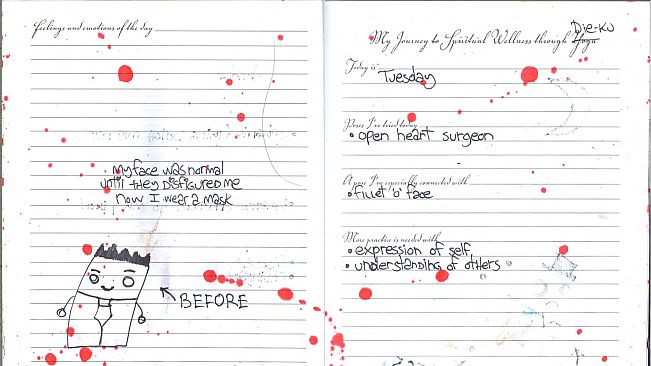 Feelings and emotions of the day
My face was normal
until they DISfigured me
now I wear a mask
BEFORE
Die-Ku
My Journey to Spiritual Wellness through Yoga
Today is
Tuesday
Poses I've tried today
• open heart surgeon
A pose I'm especially connected with
• fillet 'o' face
More practice is needed with
• expression of self
• understanding of others